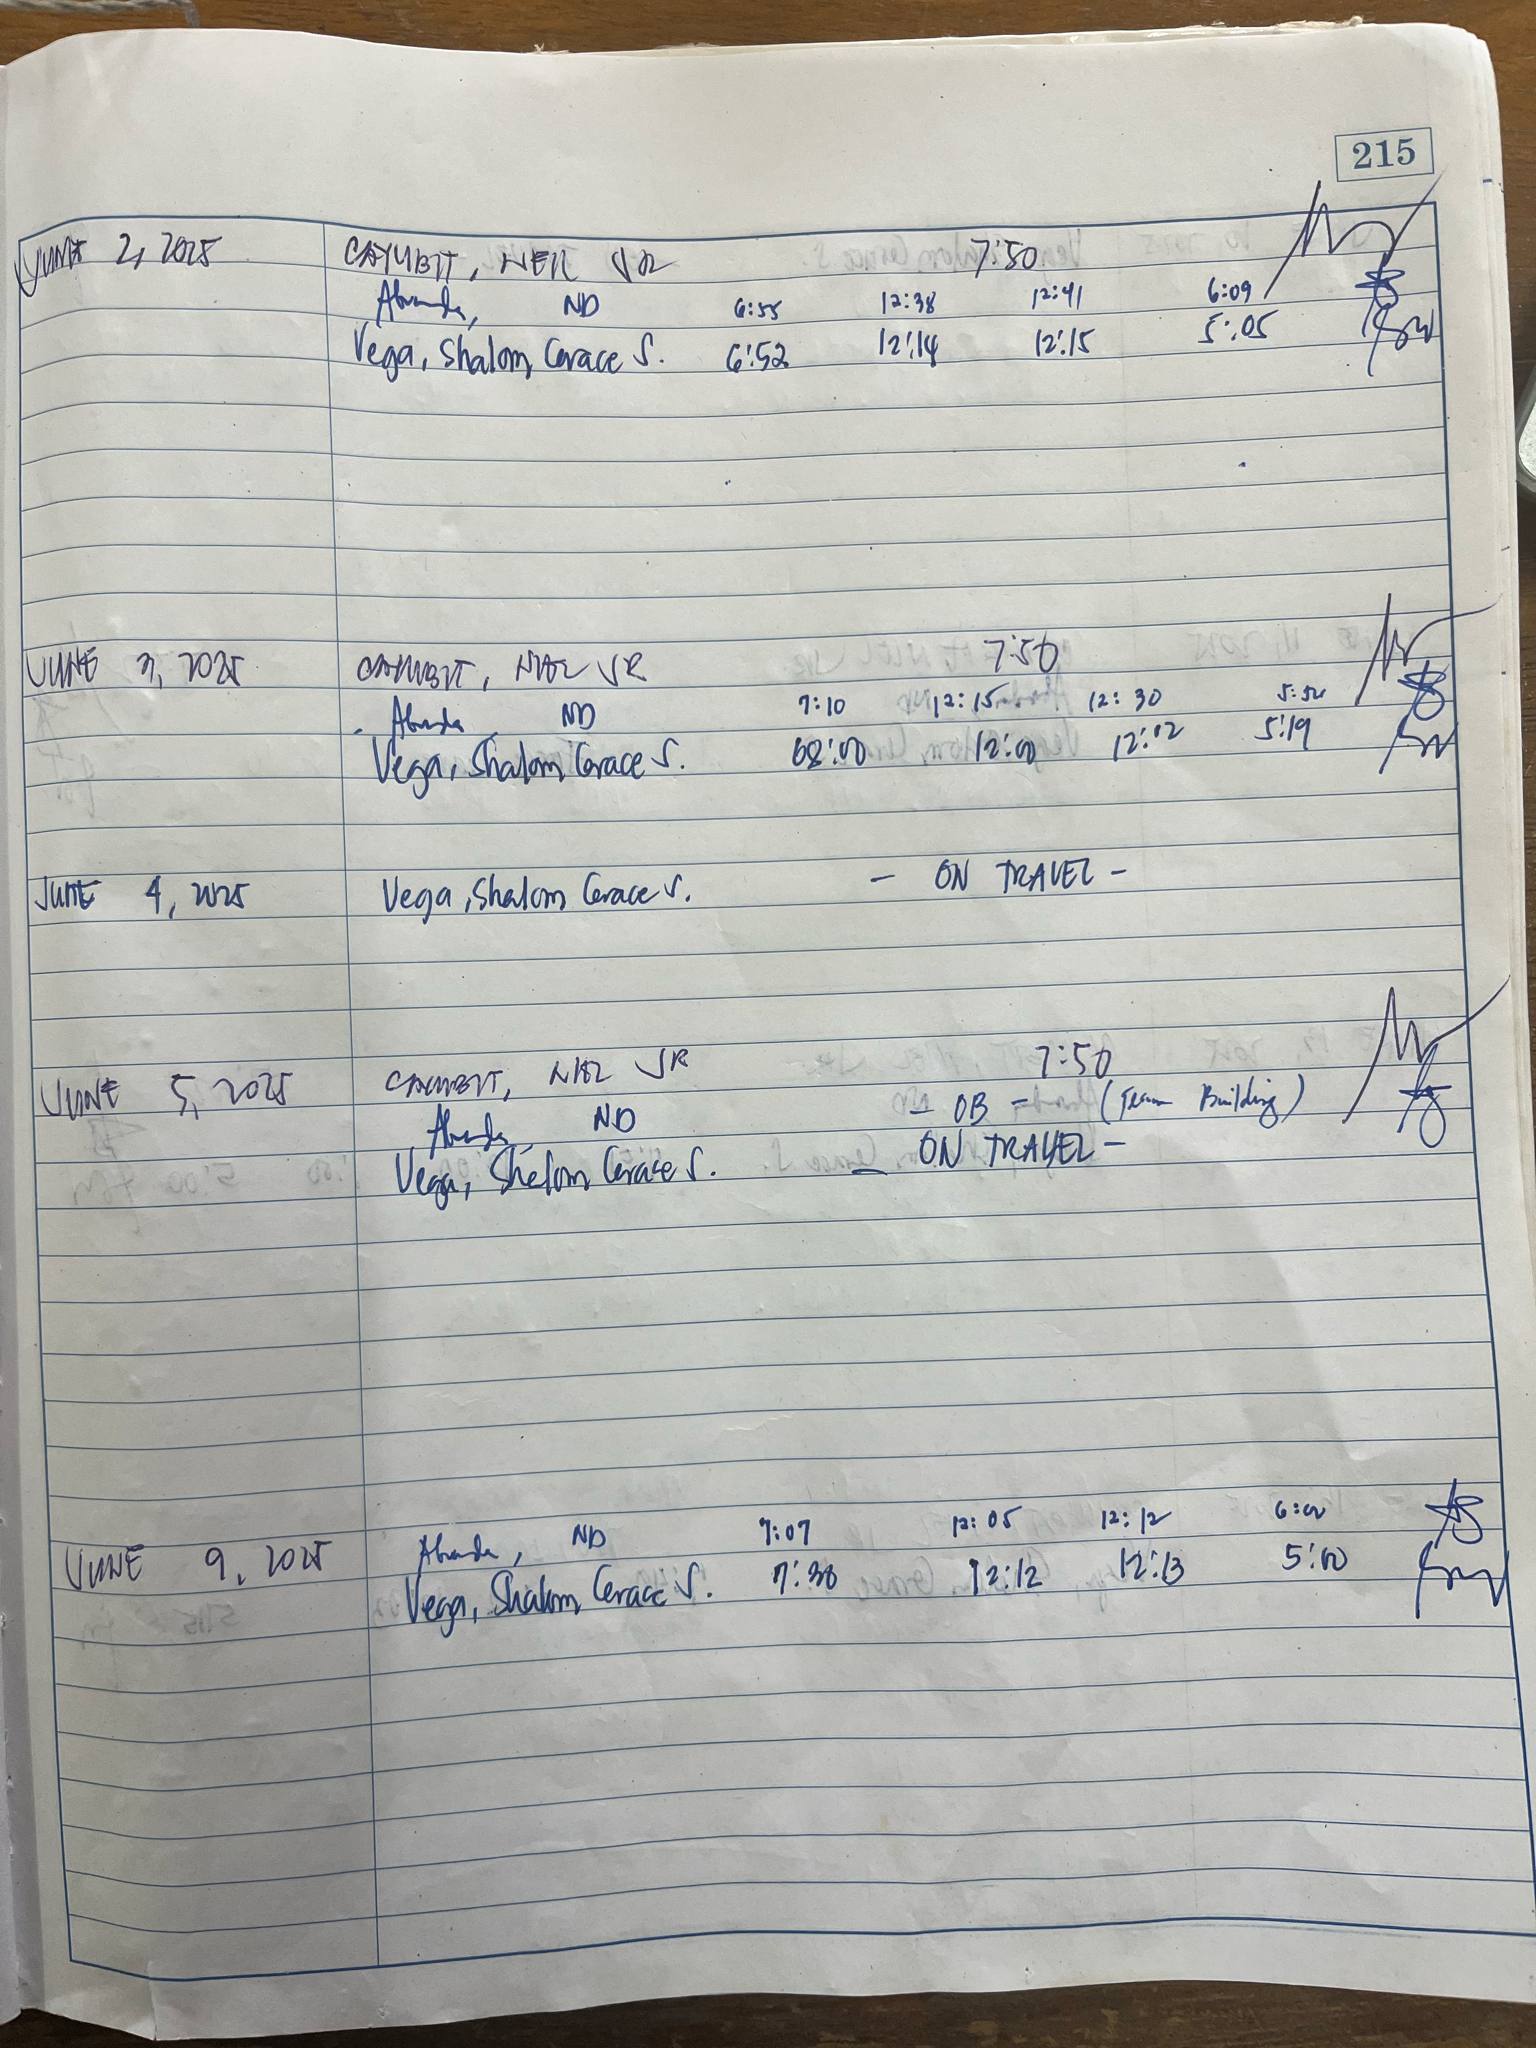 215
JUNE 2, 2025 CAYUBIT, NEIL JR 7:50
ND 6:55 12:38 12:41 6:09
Vega, Shalom Grace S. 6:52 12:14 12:15 5:05
JUNE 3, 2025 CAYUBIT, NEIL JR 7:50
ND 7:10 12:15 12:30
Vega, Shalom Grace S. 08:00 12:00 12:02 5:19
JUNE 4, 2025 Vega, Shalom Grace S. - ON TRAVEL -
JUNE 5, 2025 CAYUBIT, NEIL JR 7:50
ND - OB - (Team Building)
Vega, Shalom Grace S. - ON TRAVEL -
JUNE 9, 2025 ND 7:07 12:05 12:12 6:00
Vega, Shalom Grace S. 7:38 12:12 12:13 5:00